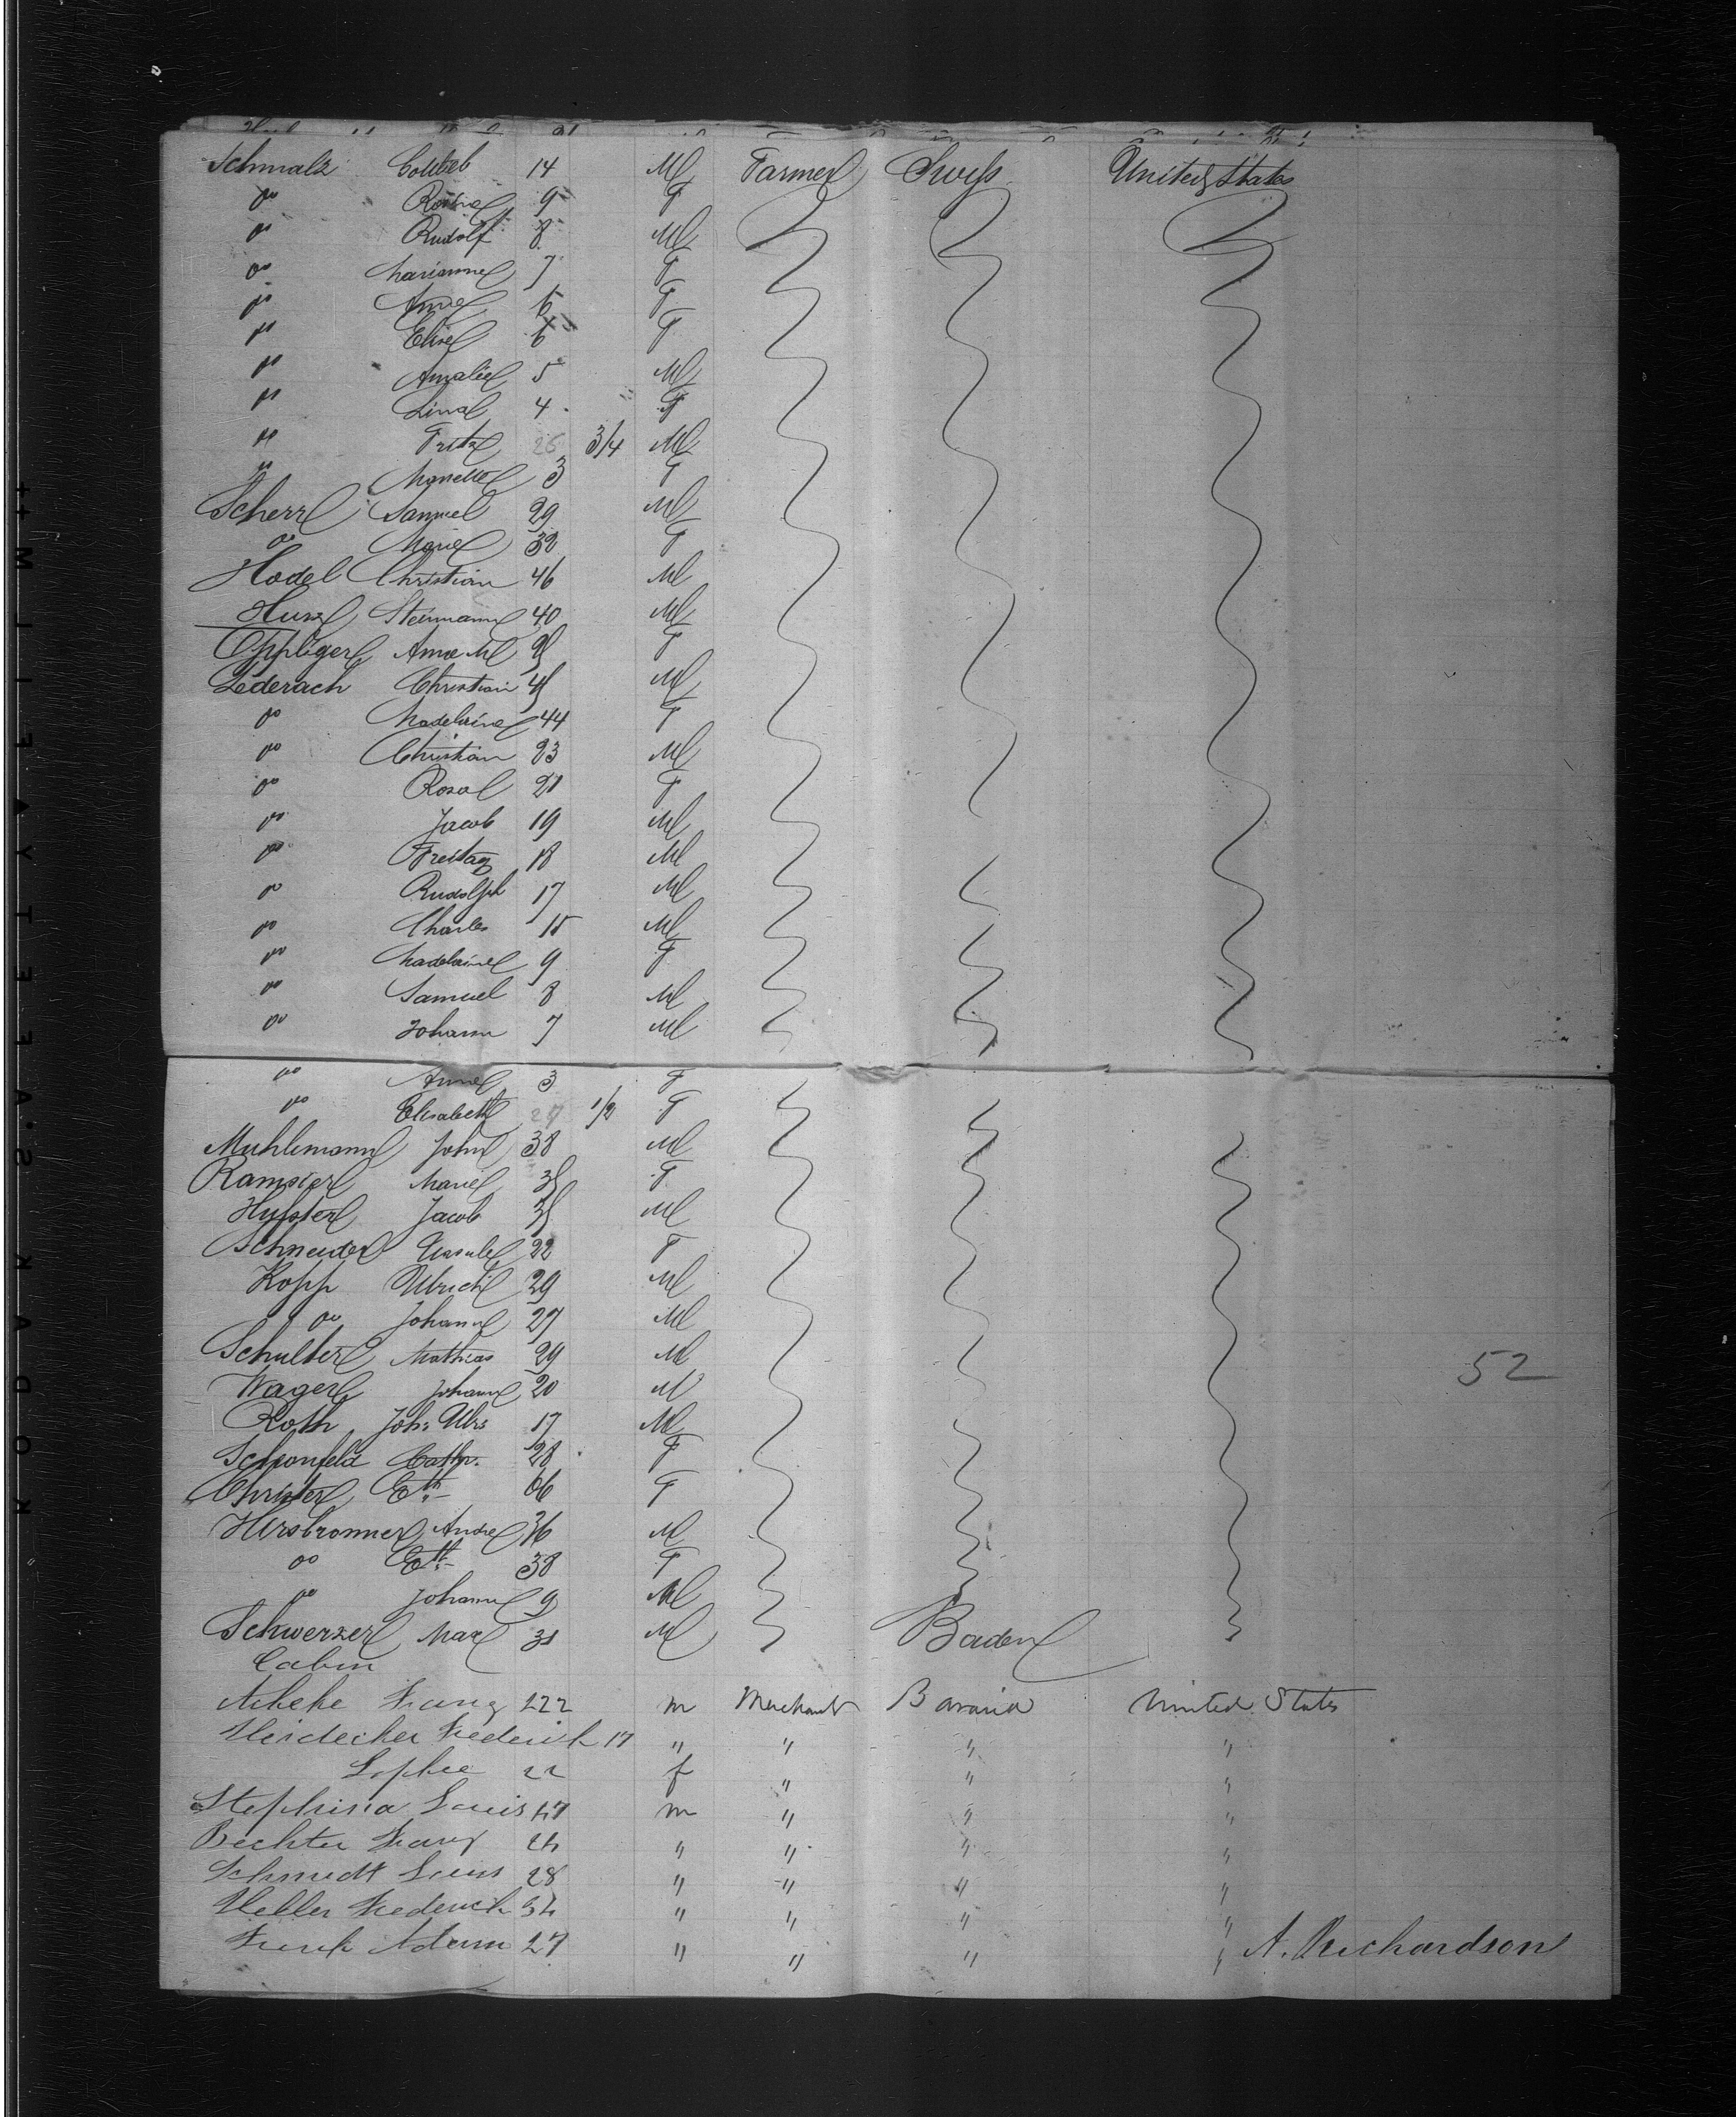 Schmalz Gottlieb 14 M Farmer Swiss United States
do Rosina 9 F
do Rudolf 8 M
do Marianne 7 F
do Anna F
do Elise 6 F
do Amalie 5 M
do Lina 4 F
do Fritz 3/4 M
do Manette 3 F
Scherr Samuel 29 M
do Marie 32 F
Hodel Christian 46 M
Steinmann 40 M
Oppliger Anna M F
Lederach Christian M
do Madelaine 44 F
do Christian 23 M
do Rosa 21 F
do Jacob 19 M
do Freitag 18 M
do Rudolph 17 M
do Charles 15 M
do Madelaine 9 F
do Samuel 8 M
do Johann 7 M
do Anna 3 F
do Elisabeth 1/2 F
Muhlemann John 38 M
Ramsier Marie F
Jacob M
Schneider Ursule 22 F
Kopp Ulrich 29 M
do Johann 27 M
Schulter Mathias 29 M
Wager Johann 20 M
Roth Joh: Ulrs 17 M
Schonfeld Cath. 28 F
Christer Eth 66 F
Hirsbronner Andre 36 M
do Eth 38 F
do Johann 9 M
Schwerzer Max 31 M Baden
Cabin
Franz 22 m Merchant Bavaria United States
Heidecker Frederick 17 " " " "
Sophie 22 f " " "
Louis 47 m " " "
Bechter Franz 24 " " " "
Schmidt Louis 28 " " " "
Heller Frederick 34 " " " "
Frank Adam 27 " " " " A. Richardson
52